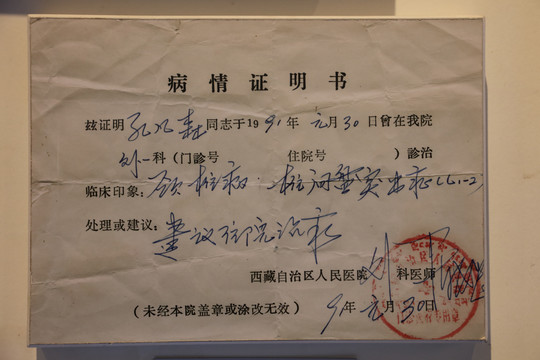 病情证明书
兹证明孔繁森同志于1991年元月30日曾在我院
外一科(门診号 住院号 )診治
临床印象: 颈椎病. 椎间盘突出症
处理或建议: 建议住院治疗
西藏自治区人民医院 外一科医师
(未经本院盖章或涂改无效) 91年元月30日